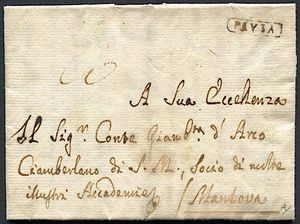 PAVIA
A Sua Eccellenza
Il Sig.r Conte Giamb.ta d'Arco
Ciamberlano di S. M., Socio di molte
illustri Accademie
Mantova